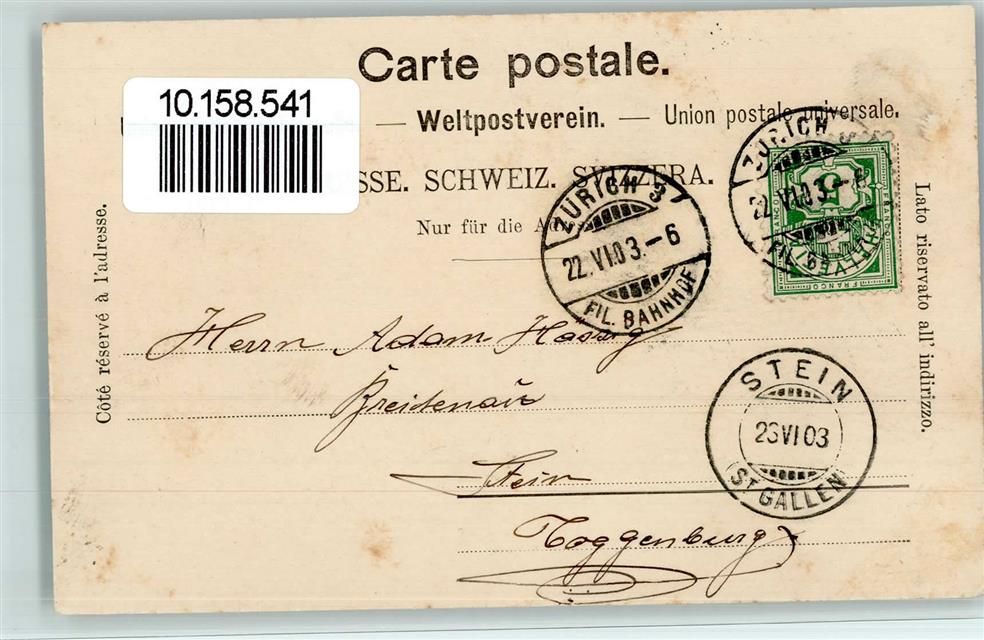 Carte postale.
10.158.541
— Weltpostverein. — Union postale universale.
SSE. SCHWEIZ. SVIZZERA.
Nur für die A
Côté réservé à l'adresse.
Lato riservato all' indirizzo.
ZÜRICH 3
22.VI.03.–6
FIL. BAHNHOF
ZÜRICH
22.VI.03.–6
FIL.
FRANCO
HELVETIA
Herrn Adam Hässig
Breitenau
Stein
Toggenburg
STEIN
23 VI 03
(ST. GALLEN)